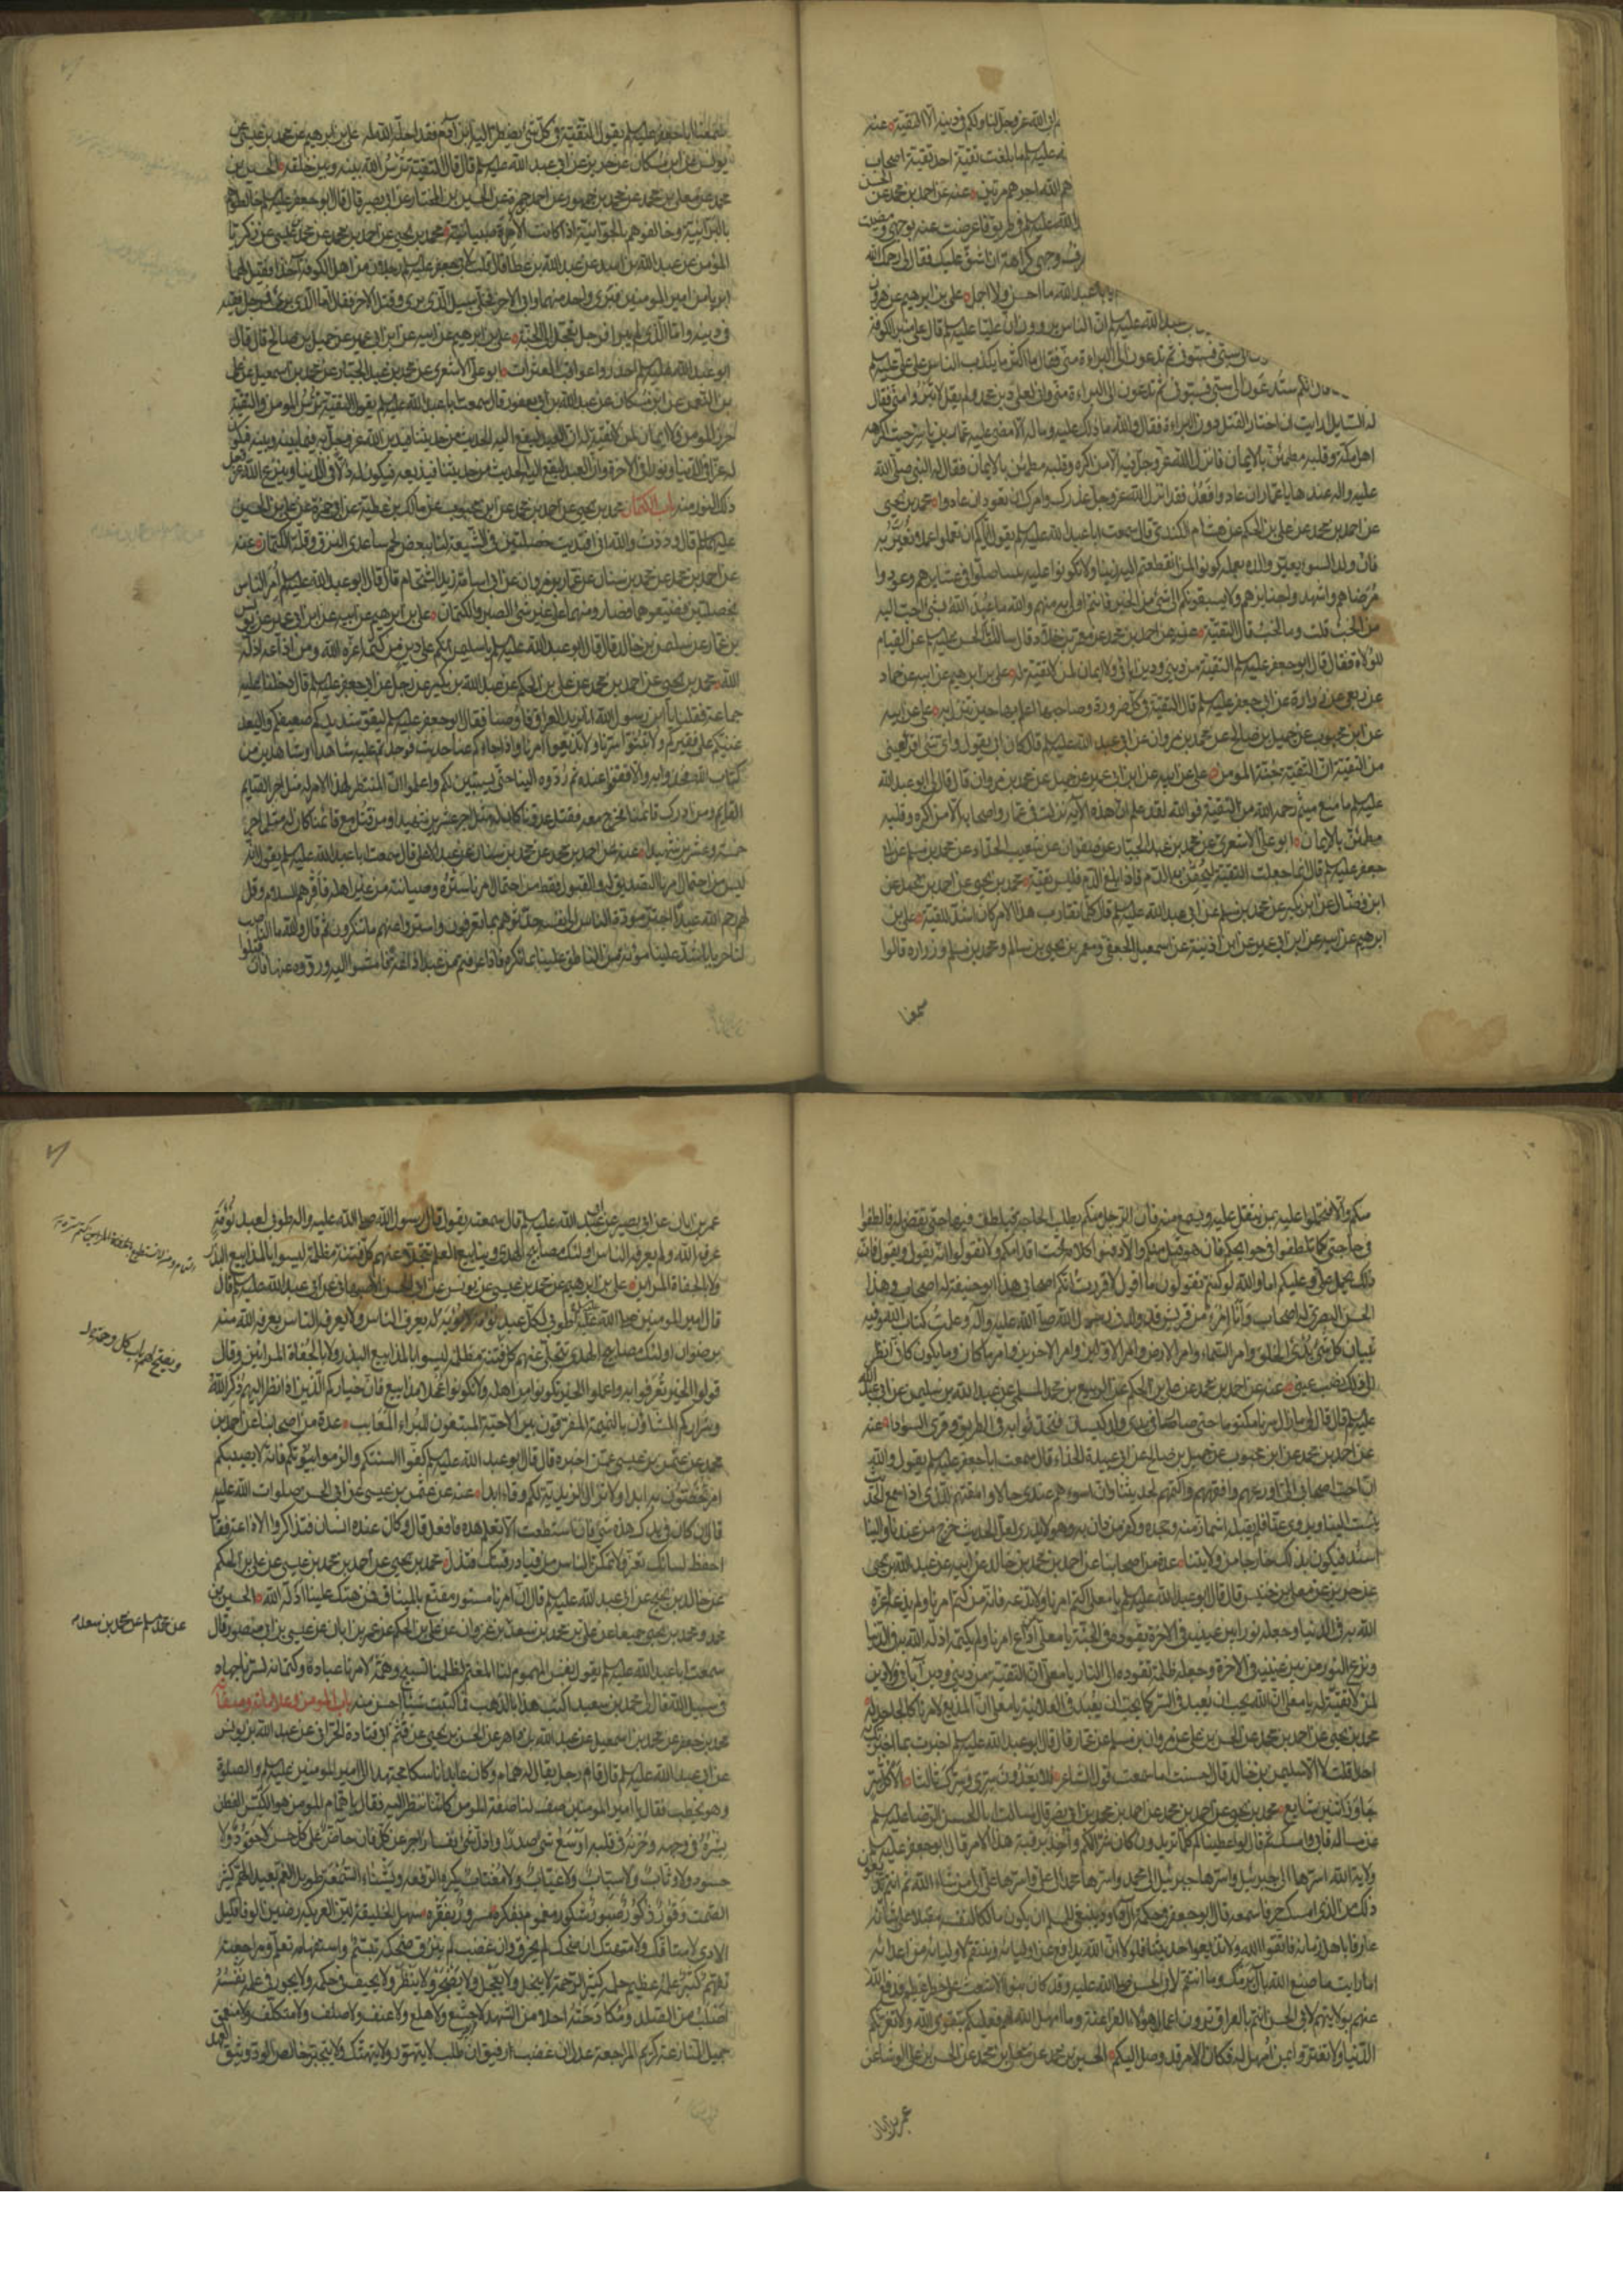 ان الله عز وجل
عليه السلم ما بلغت تقية احد تقية اصحاب
هم الله اجرهم مرتين عنه عن احمد بن محمد عن الحسن
الله عليه السلم في طريق فاعرضت عنه بوجهي ومضيت
فقال لي رحمك الله
يا با عبد الله ما احسن ولا اجمل علي بن ابرهيم عن هرون
عليه السلم ان الناس يروون ان عليا عليه السلم قال على منبر الكوفة
سبي فسبوني ثم تدعون الى البراءة مني فقال ما اكثر ما يكذب الناس على علي عليه السلم
انكم ستدعون الى سبي فسبوني ثم تدعون الى البراءة مني واني لعلى دين محمد ولم يقل لا تبرؤا مني فقال
له السايل ارايت ان اختار القتل دون البراءة فقال والله ما ذلك عليه وما له الا ما مضى عليه عمار بن ياسر حيث اكرهه
اهل مكة وقلبه مطمئن بالايمان فانزل الله عز وجل فيه الا من اكره وقلبه مطمئن بالايمان فقال له النبي صلى الله
عليه واله عندها يا عمار ان عادوا فعد فقد انزل الله عز وجل عذرك وامرك ان تعود ان عادوا محمد بن يحيى
عن احمد بن محمد عن علي بن الحكم عن هشام الكندي قال سمعت ابا عبد الله عليه السلم يقول اياكم ان تعملوا عملا نعير به
فان ولد السوء يعير والده بعمله كونوا لمن انقطعتم اليه زينا ولا تكونوا عليه شينا صلوا في عشايرهم وعودوا
مرضاهم واشهدوا جنايزهم ولا يسبقونكم الى شيء من الخير فانتم اولى به منهم والله ما عبد الله بشيء احب اليه
من الخبء قلت وما الخبء قال التقية عنه عن احمد بن محمد عن معمر بن خلاد قال سالت ابا الحسن عليه السلم عن القيام
للولاة فقال قال ابو جعفر عليه السلم التقية من ديني ودين ابائي ولا ايمان لمن لا تقية له علي بن ابرهيم عن ابيه عن حماد
عن ربعي عن زرارة عن ابي جعفر عليه السلم قال التقية في كل ضرورة وصاحبها اعلم بها حين تنزل به علي عن ابيه
عن ابن محبوب عن جميل بن صالح عن محمد بن مروان عن ابي عبد الله عليه السلم قال كان ابي يقول واي شيء اقر لعيني
من التقية ان التقية جنة المؤمن علي عن ابيه عن ابن ابي عمير عن جميل عن محمد بن مروان قال قال لي ابو عبد الله
عليه السلم ما منع ميثم رحمه الله من التقية فوالله لقد علم ان هذه الاية نزلت في عمار واصحابه الا من اكره وقلبه
مطمئن بالايمان ابو علي الاشعري عن محمد بن عبد الجبار عن صفوان عن شعيب الحداد عن محمد بن مسلم عن ابي
جعفر عليه السلم قال انما جعلت التقية ليحقن بها الدم فاذا بلغ الدم فليس تقية محمد بن يحيى عن احمد بن محمد عن
ابن فضال عن ابن بكير عن محمد بن مسلم عن ابي عبد الله عليه السلم قال كلما تقارب هذا الامر كان اشد للتقية علي بن
ابرهيم عن ابيه عن ابن ابي عمير عن ابن اذينة عن اسمعيل الجعفي ومعمر بن يحيى بن سالم ومحمد بن مسلم وزرارة قالوا
سمعنا
سمعنا ابا جعفر عليه السلم يقول التقية في كل شيء يضطر اليه ابن آدم فقد احله الله له علي بن ابرهيم عن محمد بن عيسى عن
يونس عن ابن مسكان عن حريز عن ابي عبد الله عليه السلم قال قال التقية ترس الله بينه وبين خلقه الحسين بن
محمد عن معلى بن محمد عن محمد بن جمهور عن احمد بن حمزة عن الحسين بن المختار عن ابي بصير قال قال ابو جعفر عليه السلم خالطوهم
بالبرانية وخالفوهم بالجوانية اذا كانت الامرة صبيانية محمد بن يحيى عن احمد بن محمد عن محمد بن عيسى عن زكريا
المؤمن عن عبد الله بن اسد عن عبد الله بن عطا قال قلت لابي جعفر عليه السلم رجلان من اهل الكوفة اخذا فقيل لهما
ابريا من امير المؤمنين فبرئ واحد منهما وابى الاخر فخلي سبيل الذي برئ وقتل الاخر فقال اما الذي برئ فرجل فقيه
في دينه واما الذي لم يبرا فرجل تعجل الى الجنة علي بن ابرهيم عن ابيه عن ابن ابي عمير عن جميل بن صالح قال قال
ابو عبد الله عليه السلم احذروا عواقب العثرات ابو علي الاشعري عن محمد بن عبد الجبار عن محمد بن اسمعيل عن علي
بن النعمن عن ابن مسكان عن عبد الله بن ابي يعفور قال سمعت ابا عبد الله عليه السلم يقول التقية ترس المؤمن والتقية
حرز المؤمن ولا ايمان لمن لا تقية له ان العبد ليقع اليه الحديث من حديثنا فيدين الله عز وجل به فيما بينه وبينه فيكون
له عزا في الدنيا ونورا في الاخرة وان العبد ليقع اليه الحديث من حديثنا فيذيعه فيكون له ذلا في الدنيا وينزع الله عز وجل
ذلك النور منه باب الكتمان محمد بن يحيى عن احمد بن محمد عن ابن محبوب عن مالك بن عطية عن ابي حمزة عن علي بن الحسين
عليهما السلم قال وددت والله اني افتديت خصلتين في الشيعة لنا ببعض لحم ساعدي النزق وقلة الكتمان عنه
عن احمد بن محمد عن محمد بن سنان عن عمار بن مروان عن ابي اسامة زيد الشحام قال قال ابو عبد الله عليه السلم امر الناس
بخصلتين فضيعوهما فصاروا منهما على غير شيء الصبر والكتمان علي بن ابرهيم عن ابيه عن ابن ابي عمير عن يونس
بن عمار عن سليمن بن خالد قال قال ابو عبد الله عليه السلم يا سليمن انكم على دين من كتمه اعزه الله ومن اذاعه اذله
الله محمد بن يحيى عن احمد بن محمد عن علي بن الحكم عن عبد الله بن بكير عن رجل عن ابي جعفر عليه السلم قال دخلنا عليه
جماعة فقلنا يا ابن رسول الله انا نريد العراق فاوصنا فقال ابو جعفر عليه السلم ليقو شديدكم ضعيفكم وليعد
غنيكم على فقيركم ولا تبثوا سرنا ولا تذيعوا امرنا واذا جاءكم عنا حديث فوجدتم عليه شاهدا او شاهدين من
كتاب الله فخذوا به والا فقفوا عنده ثم ردوه الينا حتى يستبين لكم واعلموا ان المنتظر لهذا الامر له مثل اجر الصايم
القايم ومن ادرك قائمنا فخرج معه فقتل عدونا كان له مثل اجر عشرين شهيدا ومن قتل مع قائمنا كان له مثل اجر
خمسة وعشرين شهيدا عنه عن احمد بن محمد عن محمد بن سنان عن عبد الاعلى قال سمعت ابا عبد الله عليه السلم يقول انه
ليس من احتمال امرنا التصديق له والقبول فقط من احتمال امرنا ستره وصيانته من غير اهله فاقرهم السلام وقل
لهم رحم الله عبدا اجتر مودة الناس الى نفسه حدثوهم بما يعرفون واستروا عنهم ما ينكرون ثم قال والله ما الناصب
لنا حربا باشد علينا مؤنة من الناطق علينا بما نكره فاذا عرفتم من عبد اذاعة فامشوا اليه وردوه عنها فان قبل
منكم والا فتحملوا عليه بمن يثقل عليه ويسمع منه فان الرجل منكم يطلب الحاجة فيلطف فيها حتى تقضى له فالطفوا
في حاجتي كما تلطفون في حوايجكم فان هو قبل منكم والا فادفنوا كلامه تحت اقدامكم ولا تقولوا انه يقول ويقول فان
ذلك يحمل علي وعليكم اما والله لو كنتم تقولون ما اقول لاقررت انكم اصحابي هذا ابو حنيفة له اصحاب وهذا
الحسن البصري له اصحاب وانا امرؤ من قريش قد ولدني رسول الله صلى الله عليه وآله وعلمت كتاب الله وفيه
تبيان كل شيء بدء الخلق وامر السماء وامر الارض وامر الاولين وامر الاخرين وامر ما كان وما يكون كاني انظر
الى ذلك نصب عيني عنه عن احمد بن محمد عن علي بن الحكم عن الربيع بن محمد المسلي عن عبد الله بن سليمن عن ابي عبد الله
عليه السلم قال قال لي ما زال سرنا مكتوما حتى صار في يدي ولد كيسان فتحدثوا به في الطريق وقرى السواد عنه
عن احمد بن محمد عن ابن محبوب عن جميل بن صالح عن ابي عبيدة الحذاء قال سمعت ابا جعفر عليه السلم يقول والله
ان احب اصحابي الي اورعهم وافقههم واكتمهم لحديثنا وان اسوءهم عندي حالا وامقتهم للذي اذا سمع الحديث
ينسب الينا ويروى عنا فلم يقبله اشماز منه وجحده وكفر من دان به وهو لا يدري لعل الحديث من عندنا خرج والينا
اسند فيكون بذلك خارجا من ولايتنا عدة من اصحابنا عن احمد بن محمد بن خالد عن ابيه عن عبد الله بن يحيى
عن حريز عن معلى بن خنيس قال قال ابو عبد الله عليه السلم يا معلى اكتم امرنا ولا تذعه فانه من كتم امرنا ولم يذعه اعزه
الله به في الدنيا وجعله نورا بين عينيه في الاخرة يقوده الى الجنة يا معلى من اذاع امرنا ولم يكتمه اذله الله به في الدنيا
ونزع النور من بين عينيه في الاخرة وجعله ظلمة تقوده الى النار يا معلى ان التقية من ديني ودين آبائي ولا دين
لمن لا تقية له يا معلى ان الله يحب ان يعبد في السر كما يحب ان يعبد في العلانية يا معلى ان المذيع لامرنا كالجاحد له
محمد بن يحيى عن احمد بن محمد عن الحسن بن علي عن مروان بن مسلم عن عمار قال قال ابو عبد الله عليه السلم اخبرت بما اخبرتك به
احدا قلت لا الا سليمن بن خالد قال احسنت اما سمعت قول الشاعر فلا يعدون سري وسرك ثالثا الا كل سر
جاوز اثنين شايع محمد بن يحيى عن احمد بن محمد عن احمد بن محمد بن ابي نصر قال سالت ابا الحسن الرضا عليه السلم
عن مسالة فابى وامسك ثم قال لو اعطيناكم كلما تريدون كان شرا لكم واخذ برقبة صاحب هذا الامر قال ابو جعفر عليه السلم
ولاية الله اسرها الى جبرئيل واسرها جبرئيل الى محمد واسرها محمد الى علي واسرها علي الى من شاء الله ثم انتم تذيعون
ذلك من الذي امسك حرفا سمعه قال ابو جعفر في حكمة آل داود ينبغي للمسلم ان يكون مالكا لنفسه مقبلا على شانه
عارفا باهل زمانه فاتقوا الله ولا تذيعوا حديثنا فلولا ان الله يدافع عن اوليائه وينتقم لاوليائه من اعدائه
اما رايت ما صنع الله بآل برمك وما انتقم لابي الحسن صلى الله عليه وقد كان بنو الاشعث على خطر عظيم فدفع الله
عنهم بولايتهم لابي الحسن انتم بالعراق ترون اعمال هؤلاء الفراعنة وما امهل الله لهم فعليكم بتقوى الله ولا تغرنكم
الدنيا ولا تغتروا بمن امهل له فكان الامر قد وصل اليكم الحسين بن محمد عن معلى بن محمد عن الحسن بن علي الوشا عن
عمر بن ابان
عمر بن ابان عن ابي بصير عن ابي عبد الله عليه السلم قال سمعته يقول قال رسول الله صلى الله عليه واله طوبى لعبد نومة
عرفه الله ولم يعرفه الناس اولئك مصابيح الهدى وينابيع العلم تنجلي عنهم كل فتنة مظلمة ليسوا بالمذاييع البذر
ولا بالجفاة المرائين علي بن ابرهيم عن محمد بن عيسى عن يونس عن ابي الحسن الاصبهاني عن ابي عبد الله عليه السلم قال
قال امير المؤمنين صلى الله عليه طوبى لكل عبد نومة لا يؤبه له يعرف الناس ولا يعرفه الناس يعرفه الله منه
برضوان اولئك مصابيح الهدى تنجلي عنهم كل فتنة مظلمة ليسوا بالمذاييع البذر ولا بالجفاة المرائين وقال
قولوا الخير تعرفوا به واعملوا الخير تكونوا من اهله ولا تكونوا عجلا مذاييع فان خياركم الذين اذا نظر اليهم ذكر الله
وشراركم المشاؤن بالنميمة المفرقون بين الاحبة المبتغون للبراء المعايب عدة من اصحابنا عن احمد بن
محمد عن عثمن بن عيسى عمن اخبره قال قال ابو عبد الله عليه السلم كفوا السنتكم والزموا بيوتكم فانه لا يصيبكم
امر تخصون به ابدا ولا تزال الزيدية لكم وقاء ابدا عنه عن عثمن بن عيسى عن ابي الحسن صلوات الله عليه
قال ان كان في يدك هذه شيء فان استطعت الا تعلم هذه فافعل قال وكان عنده انسان فتذاكروا الاذاعة فقال
احفظ لسانك تعز ولا تمكن الناس من قياد رقبتك فتذل محمد بن يحيى عن احمد بن محمد بن عيسى عن علي بن الحكم
عن خالد بن نجيح عن ابي عبد الله عليه السلم قال ان امرنا مستور مقنع بالميثاق فمن هتك علينا اذله الله الحسين بن
محمد ومحمد بن يحيى جميعا عن علي بن محمد بن سعد بن غزوان عن علي بن الحكم عن عمر بن ابان عن عيسى بن ابي منصور قال
سمعت ابا عبد الله عليه السلم يقول نفس المهموم لنا المغتم لظلمنا تسبيح وهمه لامرنا عبادة وكتمانه لسرنا جهاد
في سبيل الله قال لي محمد بن سعيد اكتب هذا بالذهب فما كتبت شيئا احسن منه باب المؤمن وعلاماته وصفاته
محمد بن جعفر عن محمد بن اسمعيل عن عبد الله بن داهر عن الحسن بن يحيى عن قثم ابي قتادة الحراني عن عبد الله بن يونس
عن ابي عبد الله عليه السلم قال قام رجل يقال له همام وكان عابدا ناسكا مجتهدا الى امير المؤمنين عليه السلم والصلوة
وهو يخطب فقال يا امير المؤمنين صف لنا صفة المؤمن كاننا ننظر اليه فقال يا همام المؤمن هو الكيس الفطن
بشره في وجهه وحزنه في قلبه اوسع شيء صدرا واذل شيء نفسا زاجر عن كل فان حاض على كل حسن لا حقود ولا
حسود ولا وثاب ولا سباب ولا عياب ولا مغتاب يكره الرفعة ويشناء السمعة طويل الغم بعيد الهم كثير
الصمت وقور ذكور صبور شكور مغموم بفكره مسرور بفقره سهل الخليقة لين العريكة رصين الوفا قليل
الاذى لا متافك ولا متهتك ان ضحك لم يخرق وان غضب لم ينزق ضحكه تبسم واستفهامه تعلم ومراجعته
تفهم كثير علمه عظيم حلمه كثير الرحمة لا يبخل ولا يعجل ولا يضجر ولا يبطر ولا يحيف في حكمه ولا يجور في علمه نفسه
اصلب من الصلد ومكادحته احلى من الشهد لا جشع ولا هلع ولا عنف ولا صلف ولا متكلف ولا متعمق
جميل المنازعة كريم المراجعة عدل ان غضب رفيق ان طلب لا يتهور ولا يتهتك ولا يتجبر خالص الود وثيق العهد
ويفتح لهم باب كل رحمة
عن محمد بن مسلم عن محمد بن سعيد